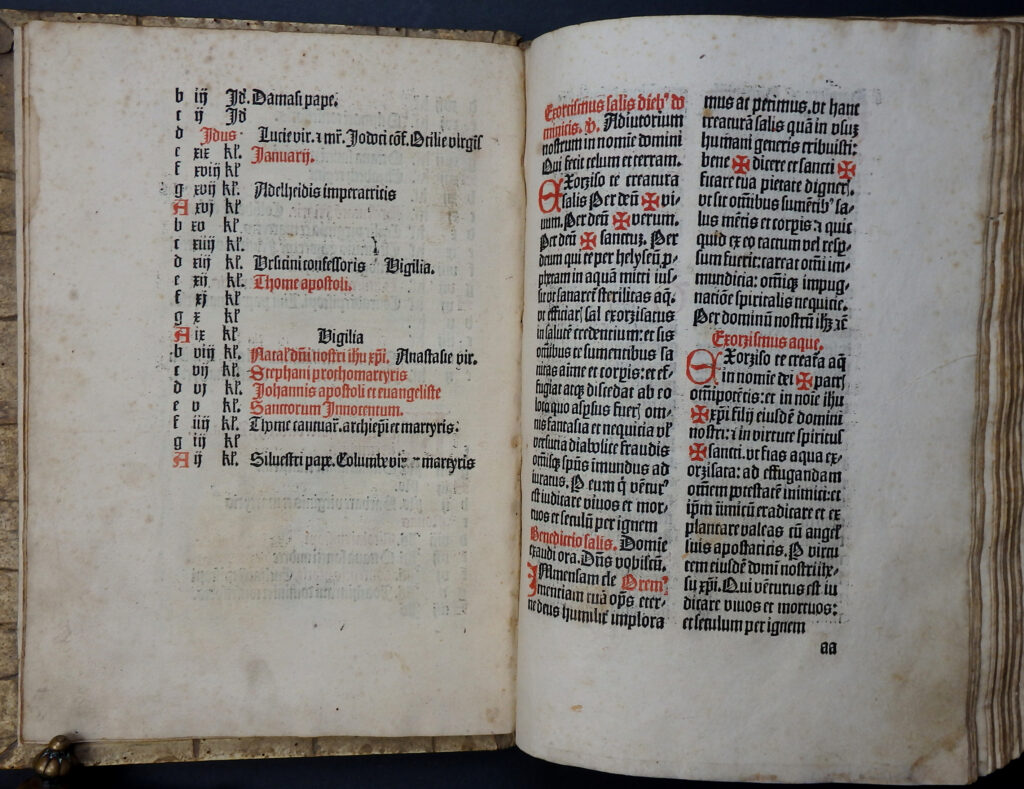 b iij Jd'. Damasi pape.
c ij Jd'
d Jdus Lucie vir. ⁊ mr̄. Jodoci cōf. Otilie virgīs
e xix kl'. Januarij.
f xviij kl'.
g xvij kl'. Adelheidis imperatricis
A xvj kl'
b xv kl'.
c xiiij kl'.
d xiij kl'. Vrsicini confessoris Vigilia.
e xij kl'. Thome apostoli.
f xj kl'
g x kl'.
A ix kl'. Vigilia
b viij kl'. Natal' dn̄i nostri ihu xp̄i. Anastasie vir.
c vij kl'. Stephani prothomartyris
d vj kl'. Johannis apostoli et euangeliste
e v kl'. Sanctorum Innocentum.
f iiij kl'. Thome cantuar̄. archiep̄i et martyris.
g iij kl'
A ij kl'. Siluestri pape. Columbe vir ⁊ martyris
Exorcismus salis dieb' do
minicis. v. Adiutorium
nostrum in nomīe domini
Qui fecit celum et terram.
EXorziso te creatura
salis Per deū ✠ vi-
uum. Per deū ✠ verum.
Per deū ✠ sanctuz. Per
deum qui te per helyseū p̄-
phetam in aquā mitti ius-
sit vt sanaret sterilitas aq̄.
vt efficiar̄ sal exorzisatus
in salutē credentium: et sis
om̄ibus te sumentibus sa
nitas aīme et corp̄is: et ef-
fugiat atqȝ discedat ab eo
loco quo aspsus fuer̄. om-
nis fantasia et nequicia vl'
versucia diabolice fraudis
om̄isqȝ sp̄ns īmundus ad
iuratus. P eum q' vētur'
est iudicare viuos et mor-
tuos et seculū per ignem
Benedictio salis. Domīe
exaudi ora. Dn̄s vobiscū.
IMmensam cle Orem'
mentiam tuā op̄s eter-
ne deus humilit' implora
mus ac petimus. vt hanc
creaturā salis quā in vsuz
humani generis tribuisti:
bene ✠ dicere et sancti ✠
ficare tua pietate digner̄.
vt sit om̄ibus sumētib' sa-
lus mētis et corp̄is: ⁊ quic
quid ex eo tactum vel resp̄-
sum fuerit: careat om̄i im-
mundicia: om̄iqȝ impug-
natiōe spiritalis nequicie.
Per dominū nostrū ihȝ ⁊ē
Exorzismus aque.
EXorziso te creāra aq̄
in nomīe dei ✠ patr̄
om̄ipotētis: et in noīe ihu
✠xp̄i filij eiusdē domini
nostri: ⁊ in virtute spiritus
✠sancti. vt fias aqua ex
orzisata: ad effugandam
om̄em potestatē inimici: et
ip̄m inimicū eradicare et ex
plantare valeas cū angel'
suis apostaticis. P virtu
tem eiusdē domī nostri ihe-
su xp̄i. Qui vēturus est iu
dicare viuos et mortuos:
et seculum per ignem
aa